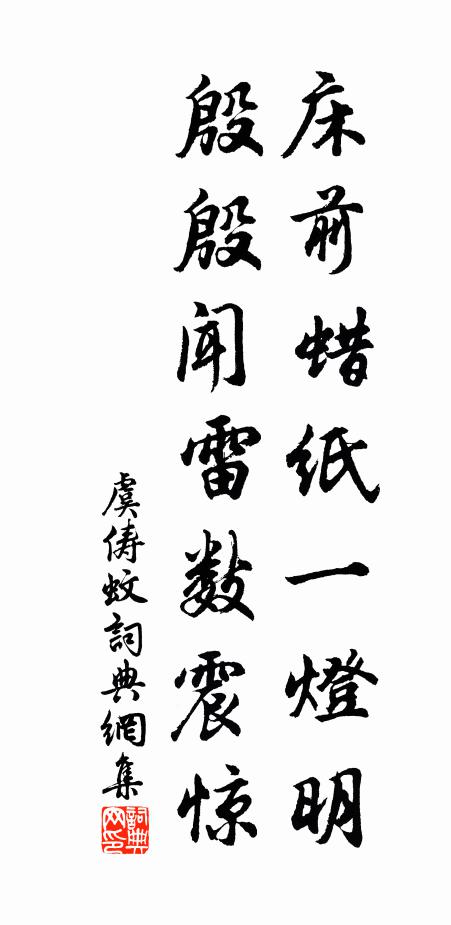 床前蜡纸一燈明
殷殷闻雷数震惊
虞俦蚊詞典網集
詞典网印